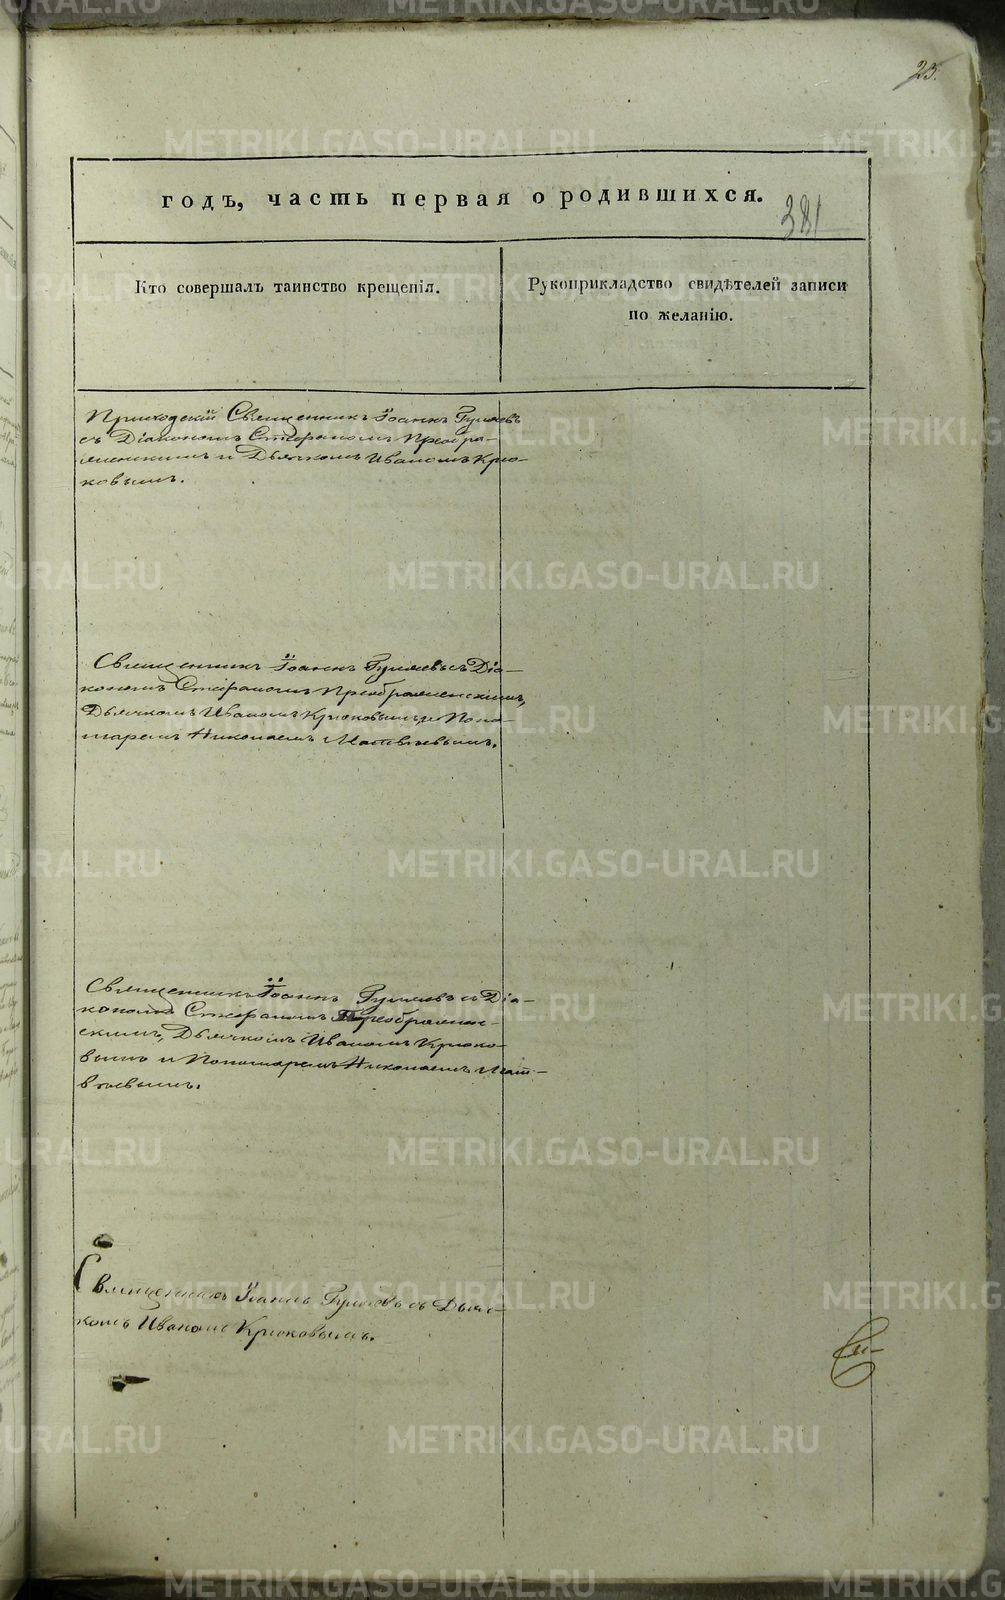 23.
годъ, часть первая о родившихся.
381
Кто совершалъ таинство крещенія.
Рукоприкладство свидѣтелей записи
по желанію.
Приходскій Священникъ Іоаннъ Гуляевъ
съ Діакономъ Стефаномъ Преобра-
женскимъ и Дьячкомъ Иваномъ Крю-
ковымъ.
Священникъ Іоаннъ Гуляевъ съ Діа-
кономъ Стефаномъ Преображенскимъ,
Дьячкомъ Иваномъ Крюковымъ и Поно-
маремъ Николаемъ Матвѣевымъ.
Священникъ Іоаннъ Гуляевъ съ Діа-
кономъ Стефаномъ Преображен-
скимъ, Дьячкомъ Иваномъ Крюко-
вымъ и Пономаремъ Николаемъ Мат-
вѣевымъ.
Священникъ Іоаннъ Гуляевъ съ Дьяч-
комъ Иваномъ Крюковымъ.
METRIKI.GASO-URAL.RU